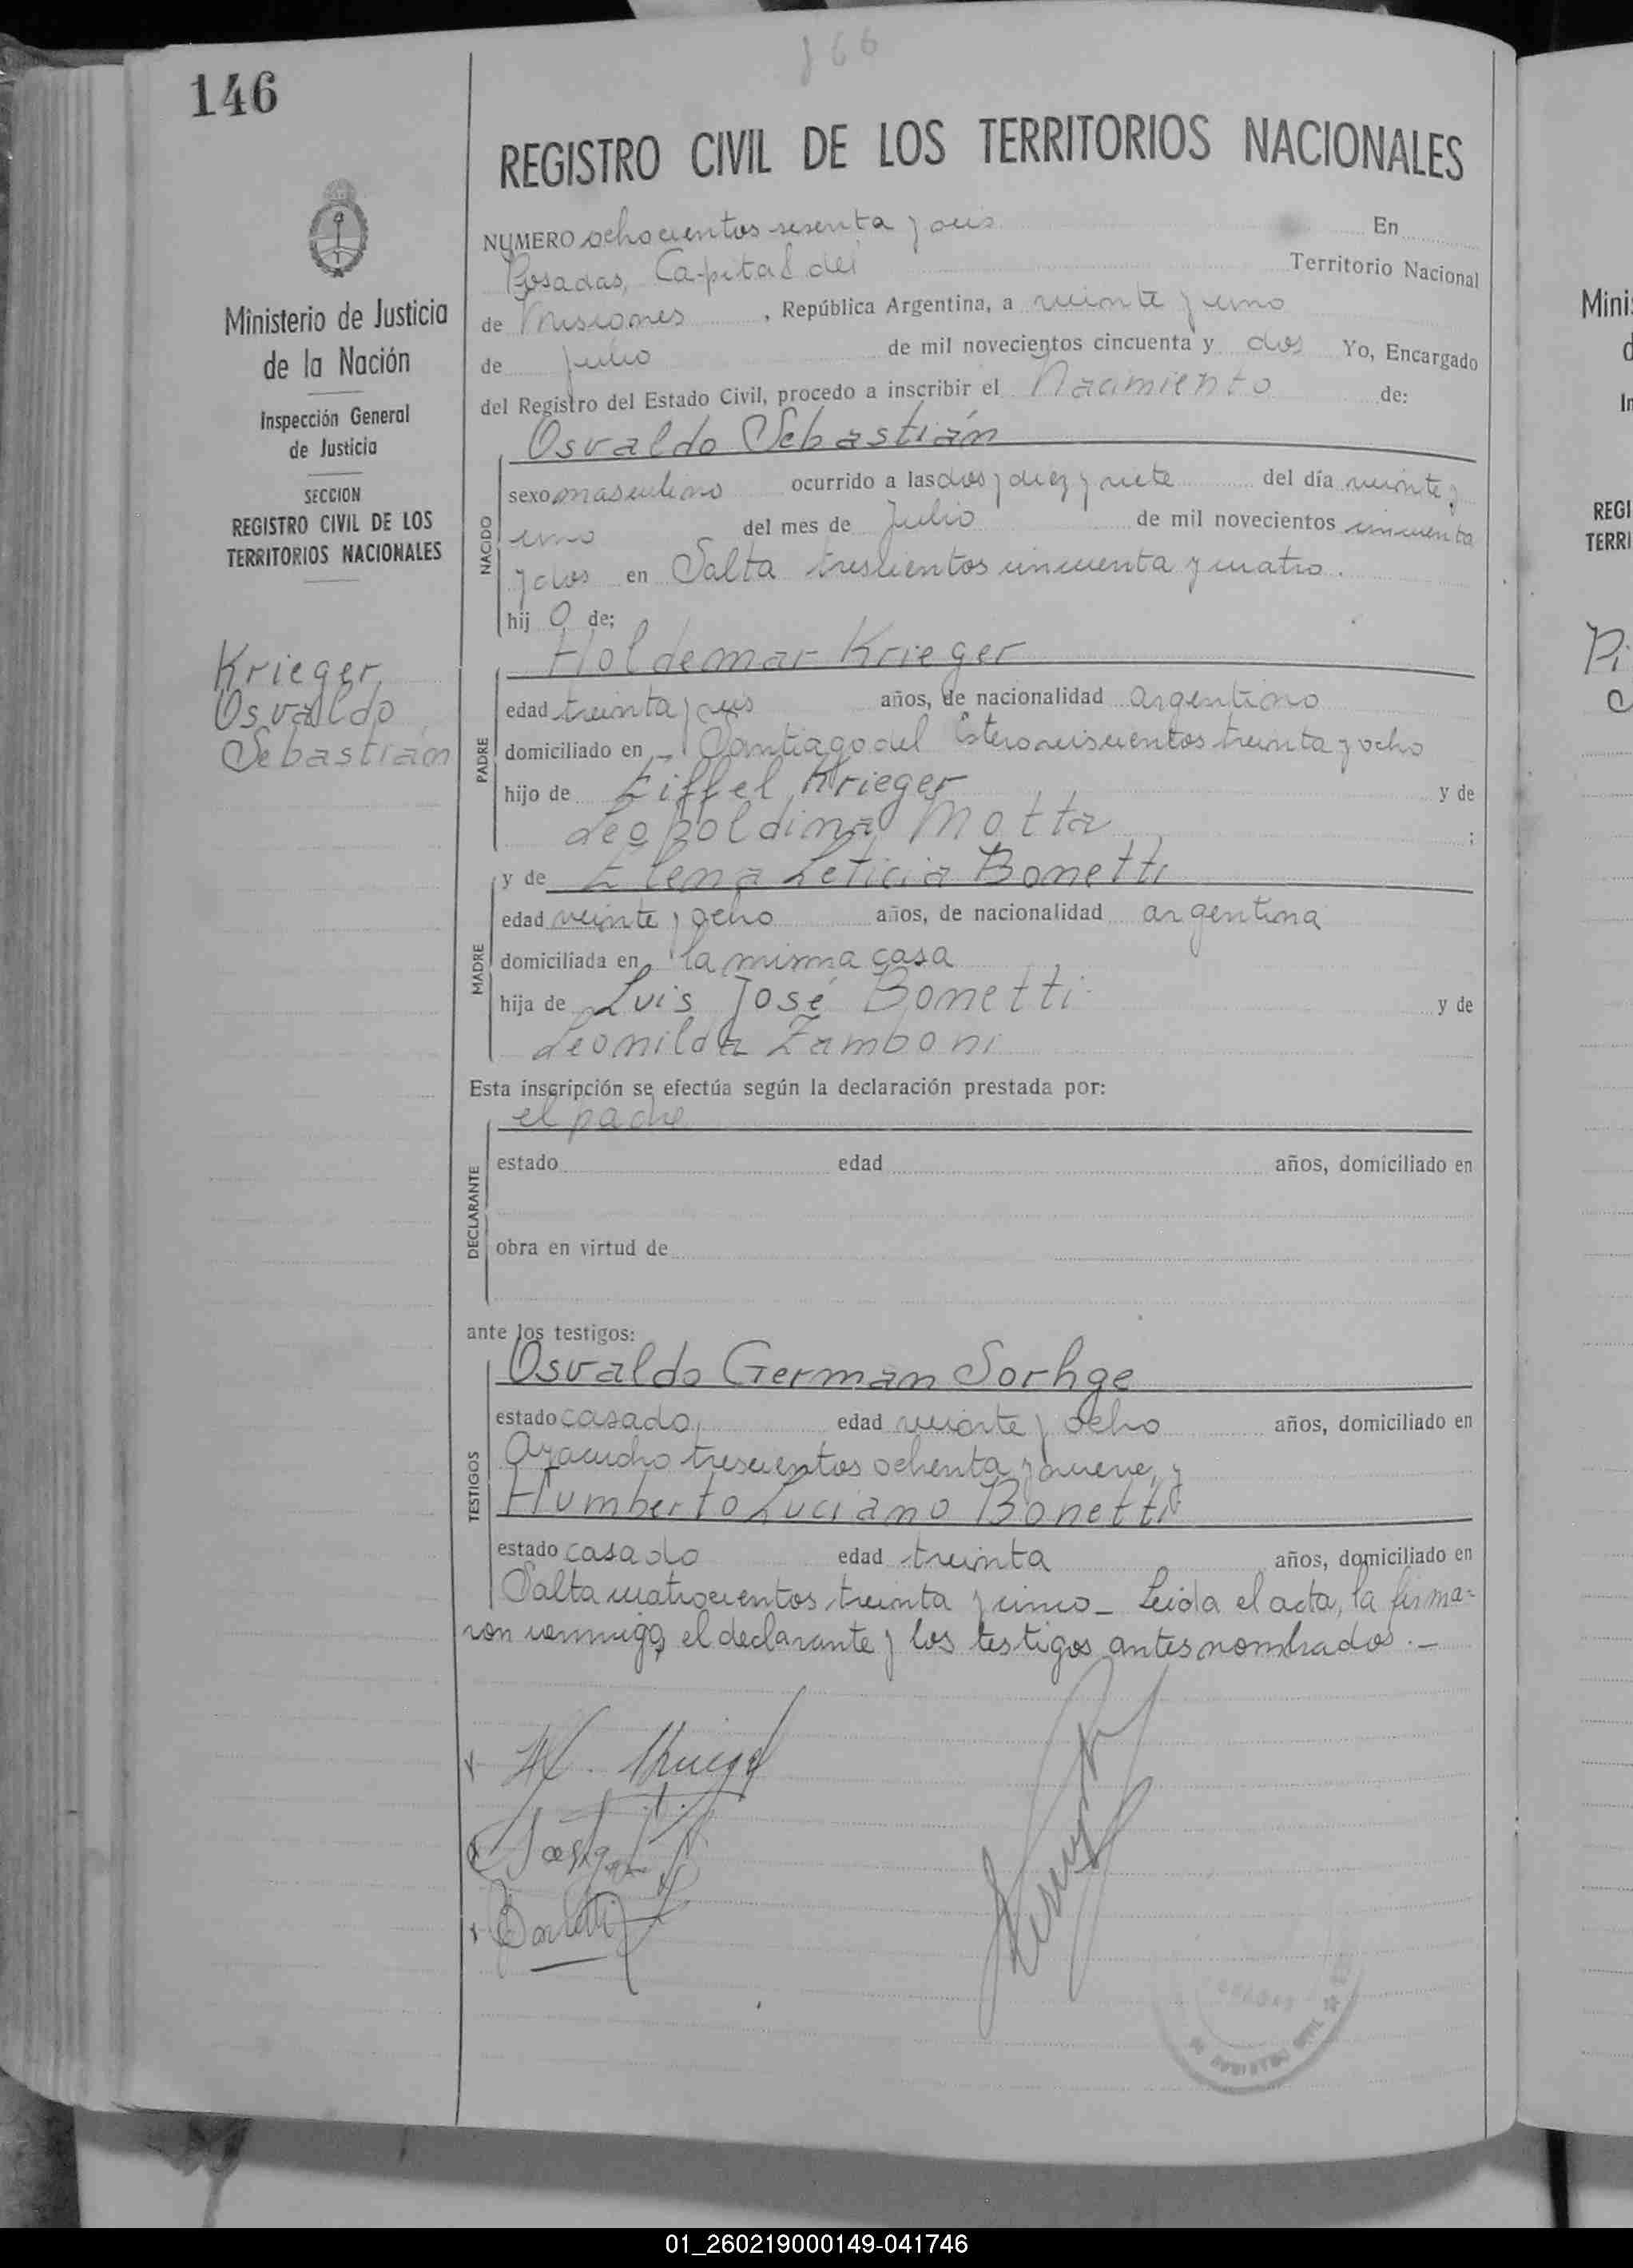 146
866
REGISTRO CIVIL DE LOS TERRITORIOS NACIONALES
NUMERO ochocientos sesenta y seis En
Posadas, Capital del Territorio Nacional
de Misiones, República Argentina, a veinte y uno
de Julio de mil novecientos cincuenta y dos Yo, Encargado
del Registro del Estado Civil, procedo a inscribir el Nacimiento de:
Osvaldo Sebastián
NACIDO
sexo masculino ocurrido a las dos y diez y siete del día veinte y
uno del mes de Julio de mil novecientos cincuenta
y dos en Salta trescientos cincuenta y cuatro.
hij o de;
PADRE
Holdemar Krieger
edad treinta y seis años, de nacionalidad argentino
domiciliado en Santiago del Estero seiscientos treinta y ocho
hijo de Eiffel Krieger y de
Leopoldina Motta ;
MADRE
y de Elena Leticia Bonetti
edad veinte y ocho años, de nacionalidad argentina
domiciliada en la misma casa
hija de Luis José Bonetti y de
Leonilda Zamboni
Esta inscripción se efectúa según la declaración prestada por:
el padre
DECLARANTE
estado edad años, domiciliado en
obra en virtud de
ante los testigos:
TESTIGOS
Osvaldo German Sorhge
estado casado, edad veinte y ocho años, domiciliado en
Ayacucho trescientos ochenta y nueve, y
Humberto Luciano Bonetti
estado casado edad treinta años, domiciliado en
Salta cuatrocientos treinta y cinco_ Leída el acta, la firma=
ron conmigo, el declarante y los testigos antes nombrados._
H. Krieger
Bonetti
Ministerio de Justicia
de la Nación
Inspección General
de Justicia
SECCION
REGISTRO CIVIL DE LOS
TERRITORIOS NACIONALES
Krieger
Osvaldo
Sebastián
Mini
REGI
TERRI
Pi
01_260219000149-041746